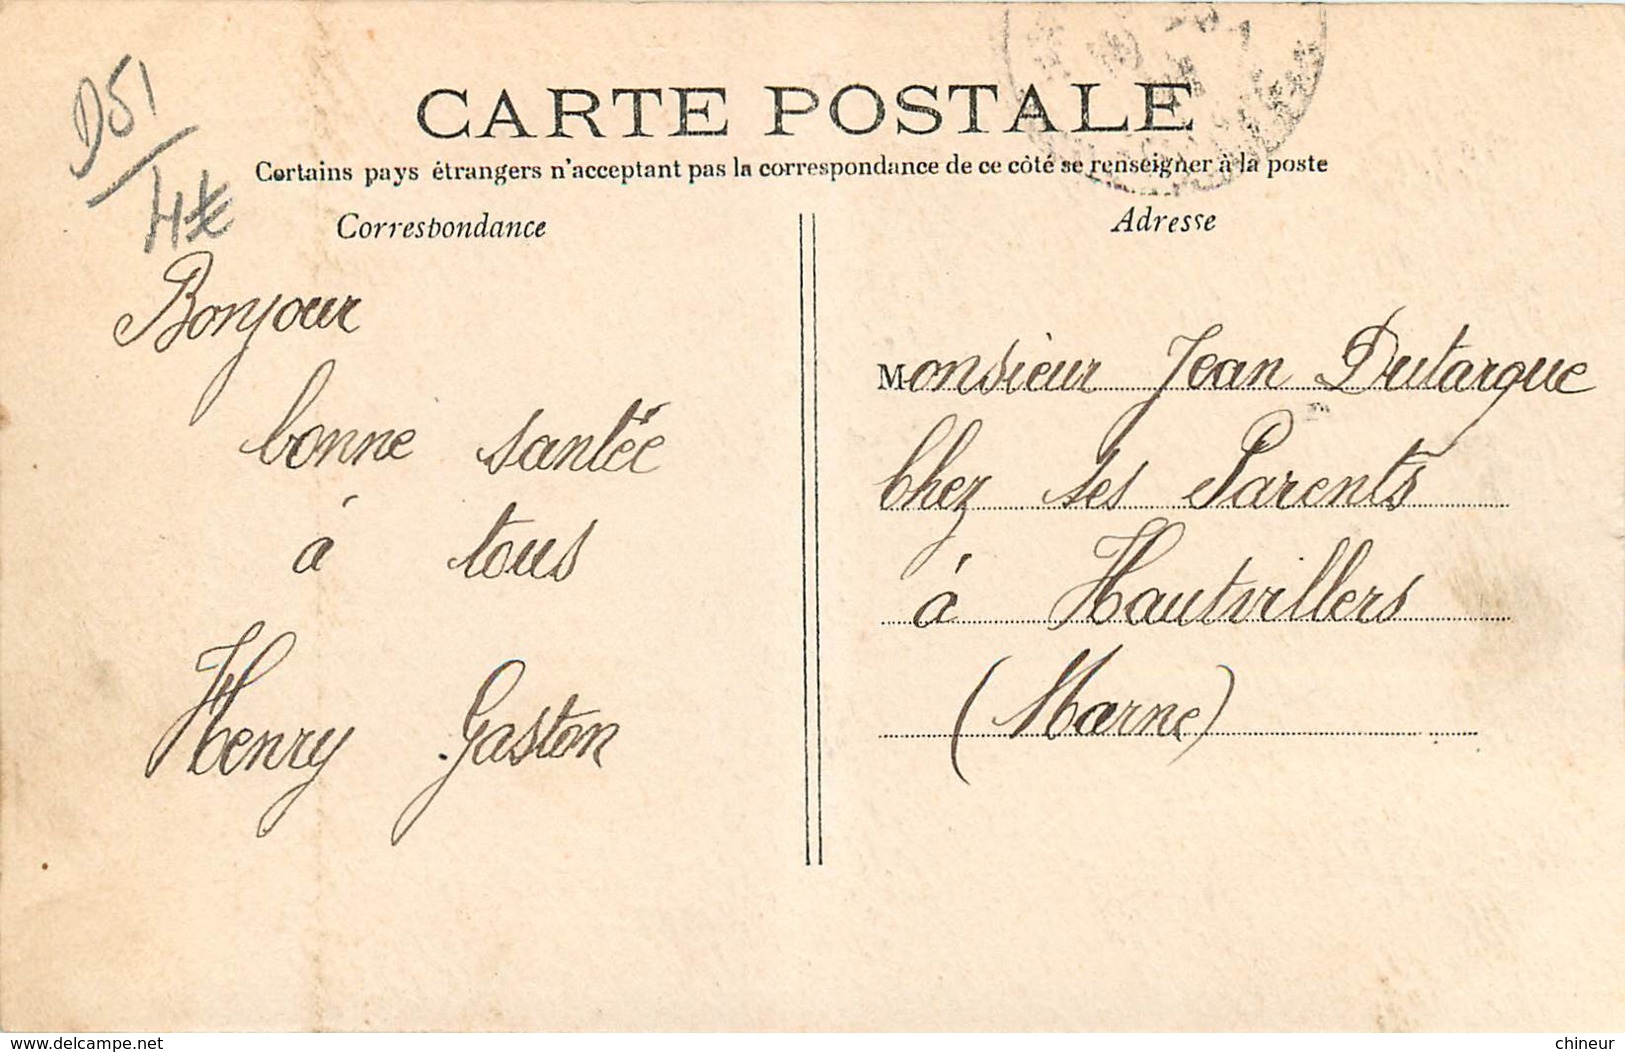 CARTE POSTALE
Certains pays étrangers n'acceptant pas la correspondance de ce côté se renseigner à la poste
D51
4€
Correspondance
Bonjour
bonne santée
à tous
Henry Gaston
Adresse
Monsieur Jean Dutarque
Chez ses Parents
à Hautvillers
(Marne)
www.delcampe.net
chineur